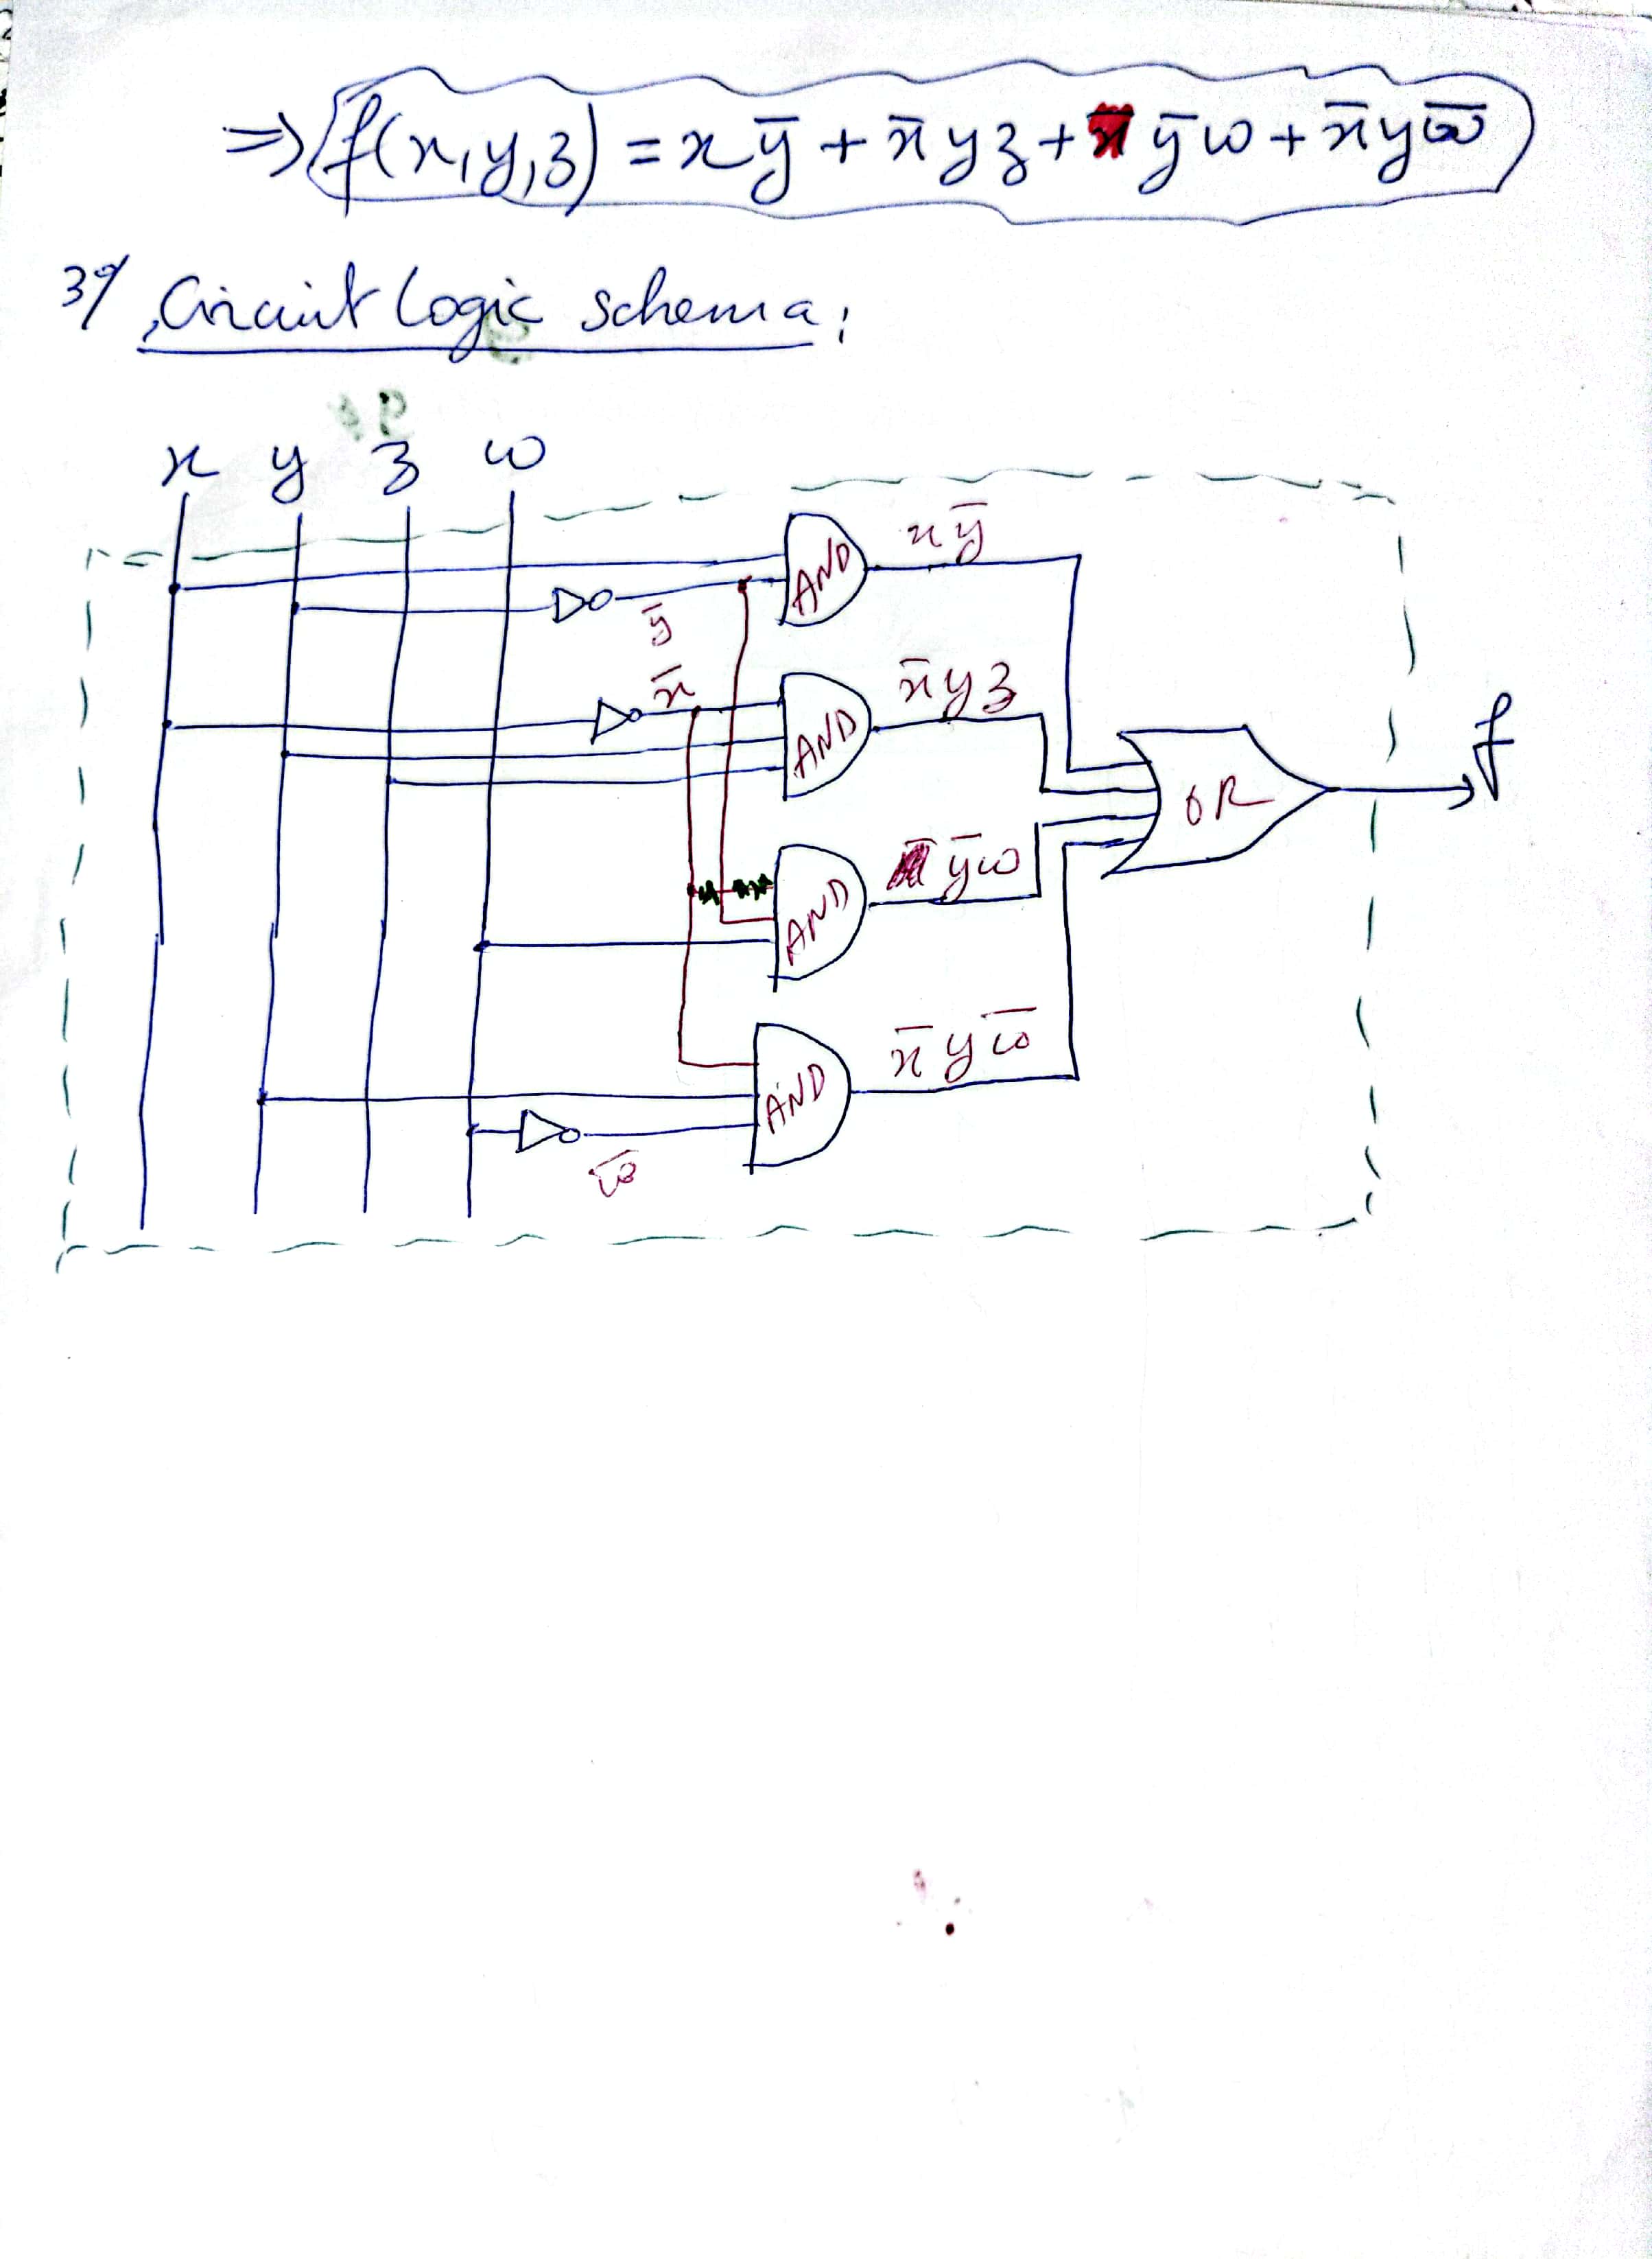 ⇒ f(x,y,z) = xȳ + x̄yz + ȳw + x̄yw̄
3°/ Circuit Logic schema:
x y z w
AND xȳ
ȳ
x̄
AND x̄yz
f
OR
AND ȳw
AND x̄yw̄
w̄